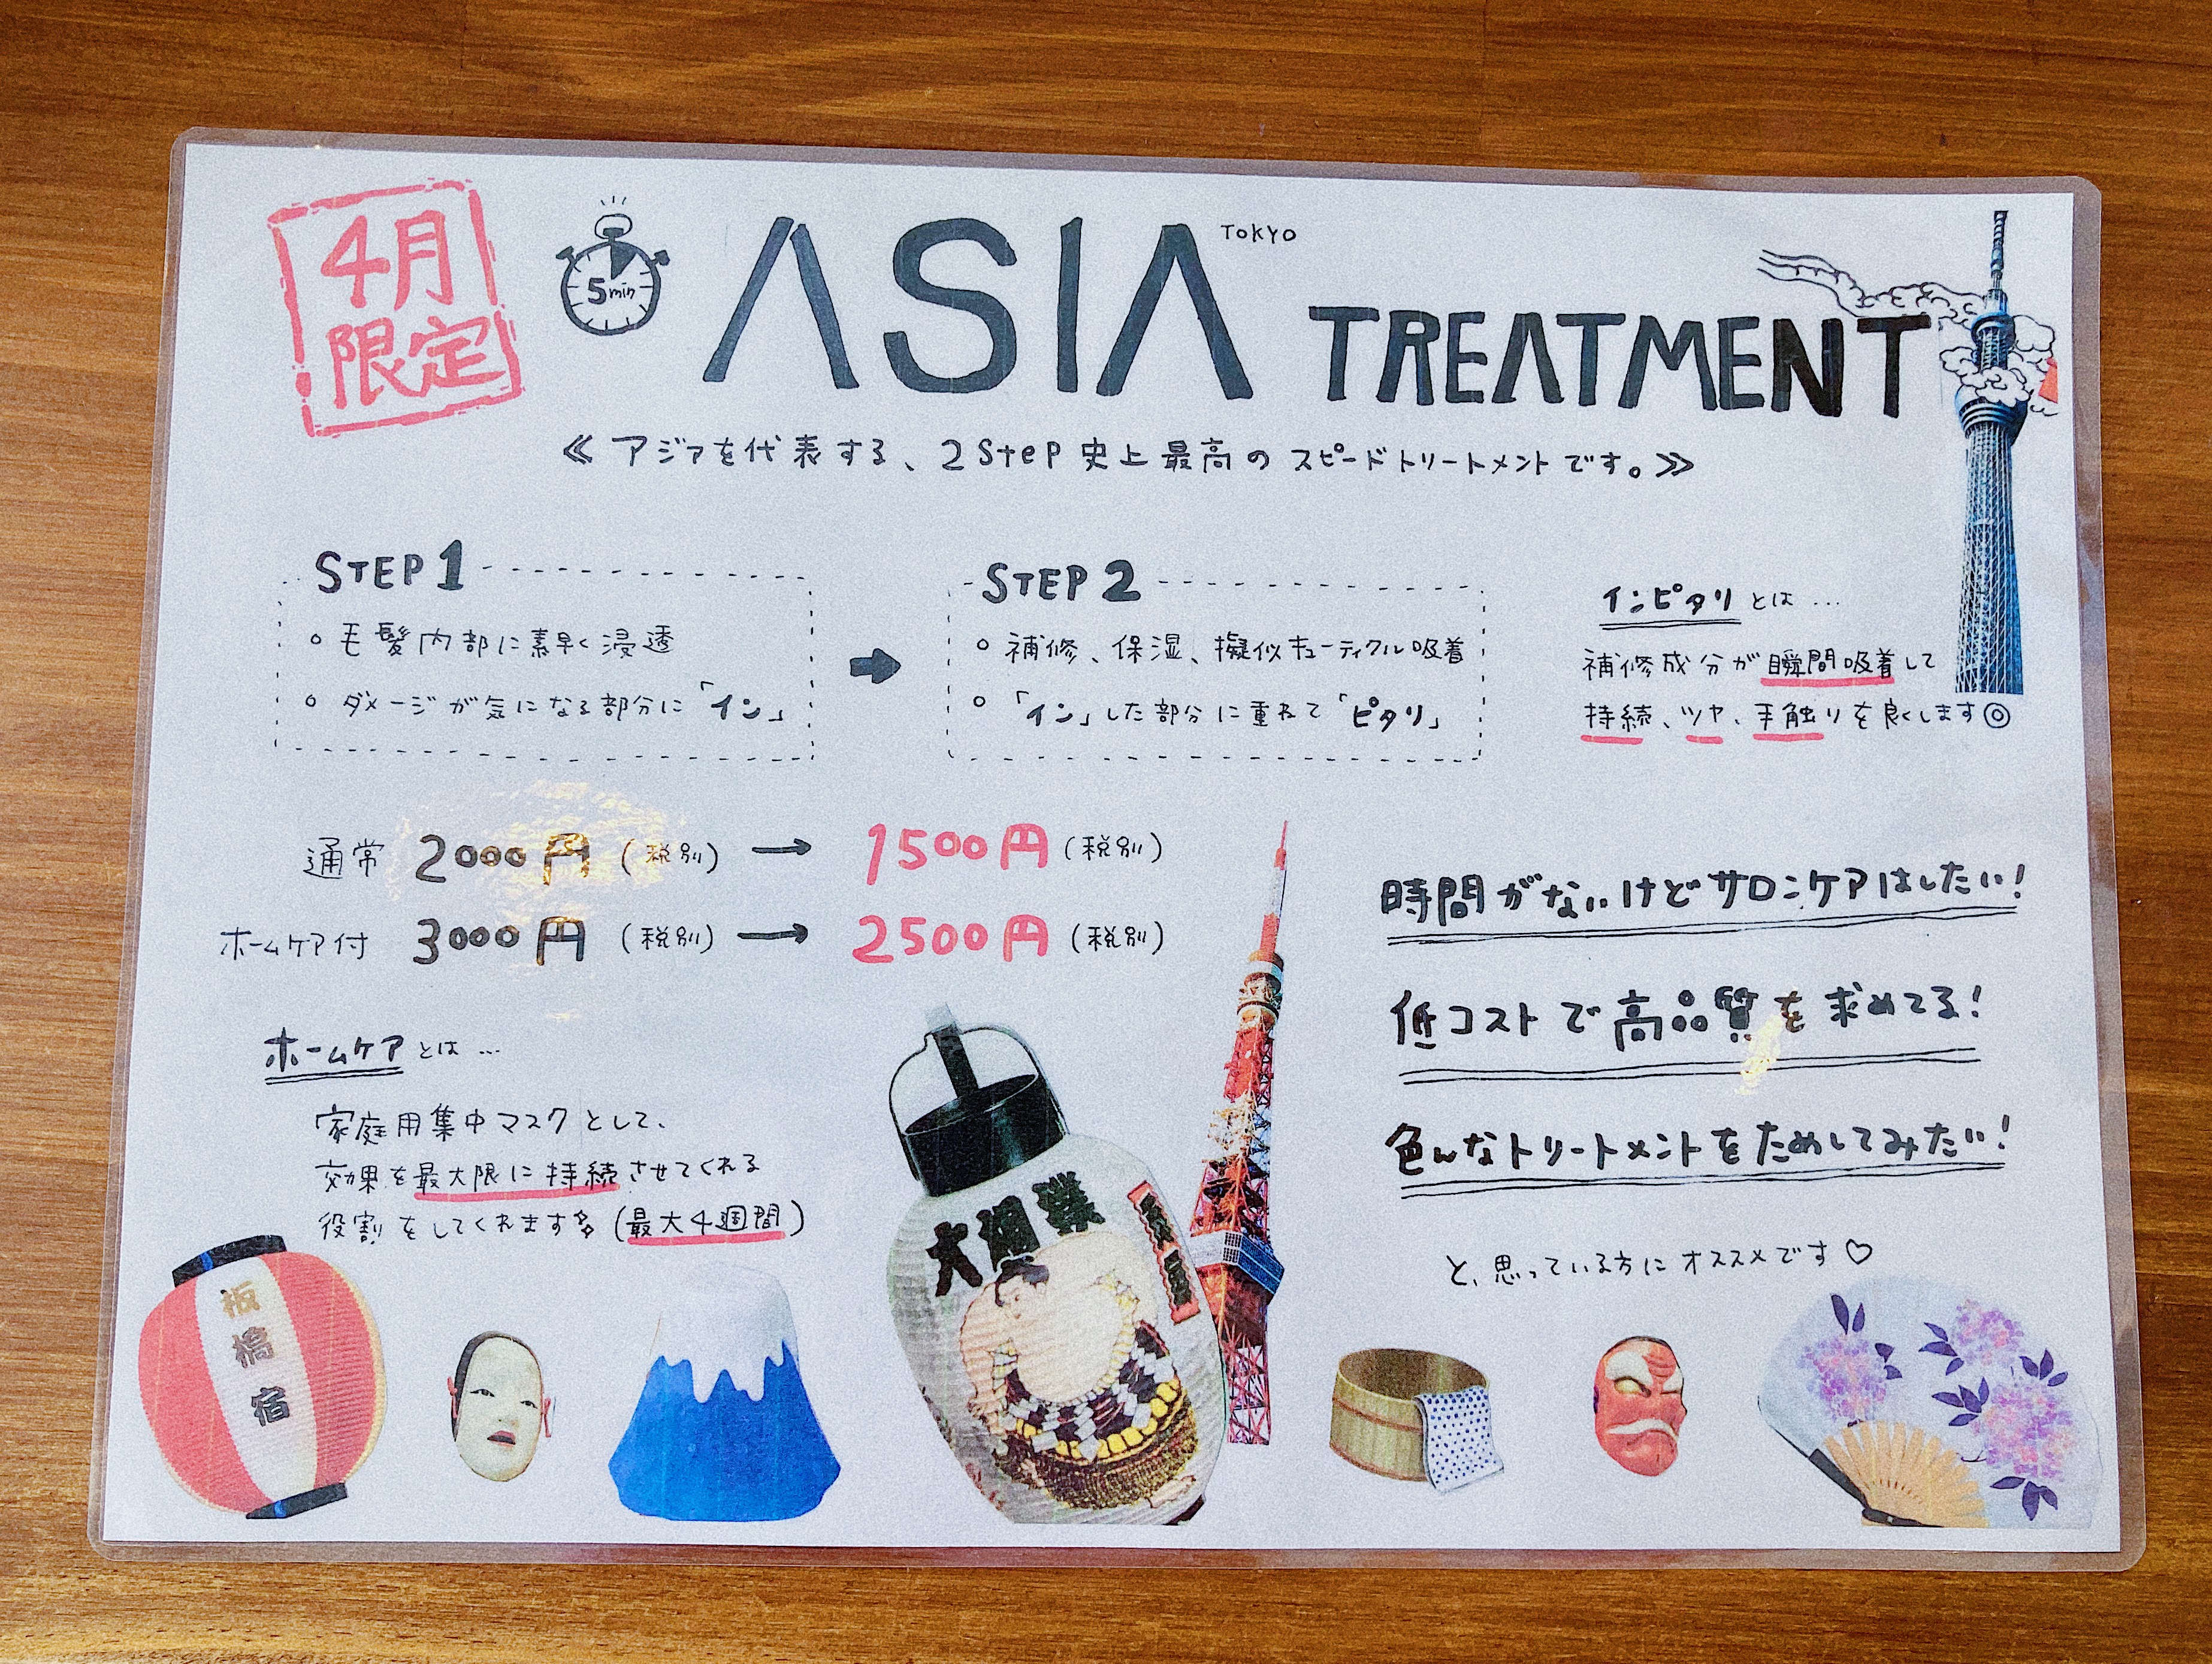 4月
限定
5min
ASIA
TOKYO
TREATMENT
≪アジアを代表する、2Step史上最高のスピードトリートメントです。≫
STEP1
○毛髪内部に素早く浸透
○ダメージが気になる部分に「イン」
STEP2
○補修、保湿、擬似キューティクル吸着
○「イン」した部分に重ねて「ピタリ」
インピタリとは…
補修成分が瞬間吸着して
持続、ツヤ、手触りを良くします◎
通常 2000円(税別)→1500円(税別)
ホームケア付 3000円(税別)→2500円(税別)
ホームケアとは…
家庭用集中マスクとして、
効果を最大限に持続させてくれる
役割をしてくれます (最大4週間)
時間がないけどサロンケアはしたい!
低コストで高品質を求めてる!
色んなトリートメントをためしてみたい!
と、思っている方にオススメです♡
板橋宿
大相撲